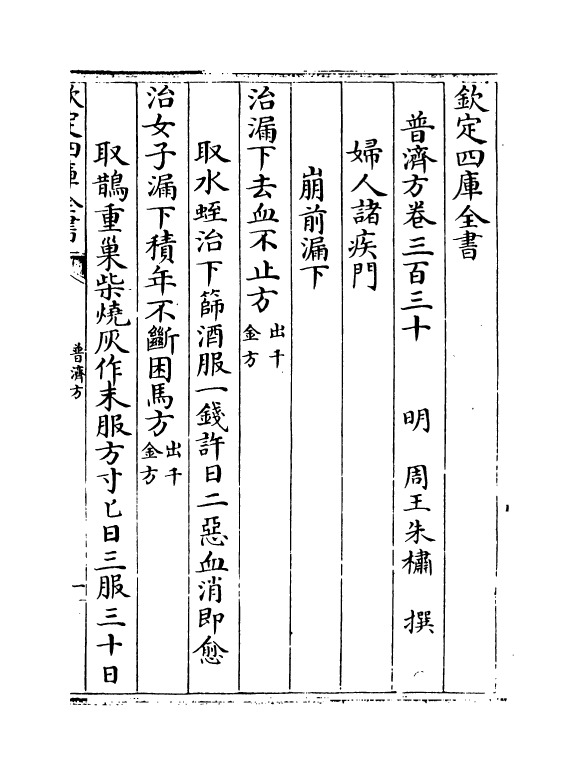 欽定四庫全書
普濟方卷三百三十　　明　周王朱橚　撰
婦人諸疾門
崩前漏下
治漏下去血不止方出千金方
取水蛭治下篩酒服一錢許日二惡血消即愈
治女子漏下積年不斷困馬方出千金方
取鵲重巢柴燒灰作末服方寸匕日三服三十日
欽定四庫全書
普濟方
一